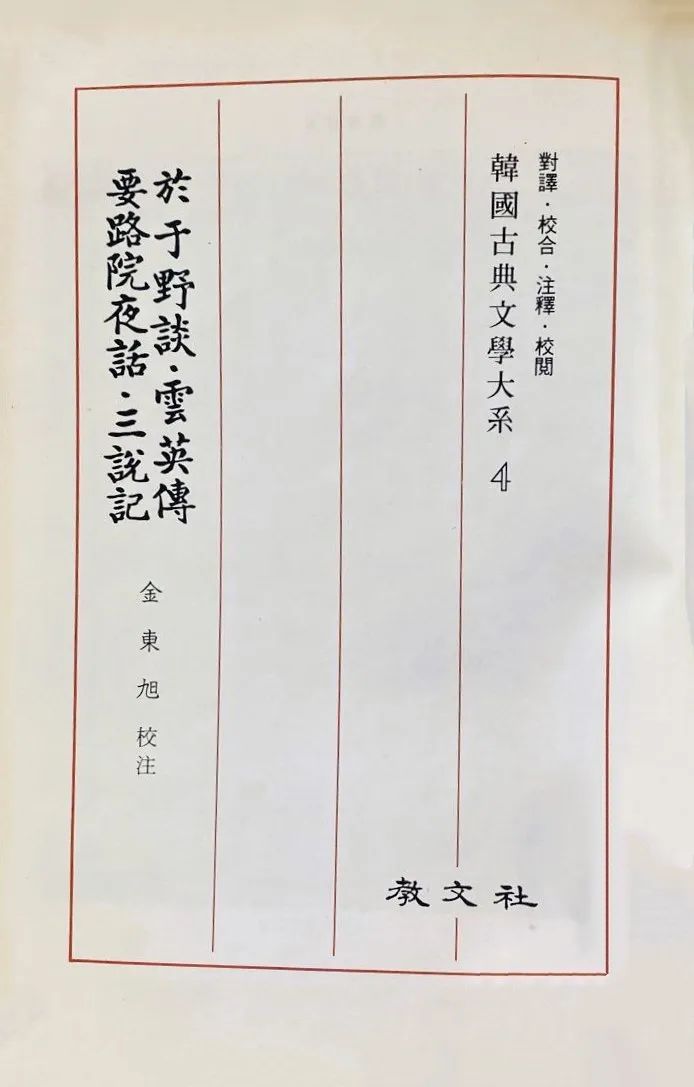 對譯·校合·注釋·校閱
韓國古典文學大系 4
於于野談·雲英傳
要路院夜話·三說記
金東旭 校注
敎文社